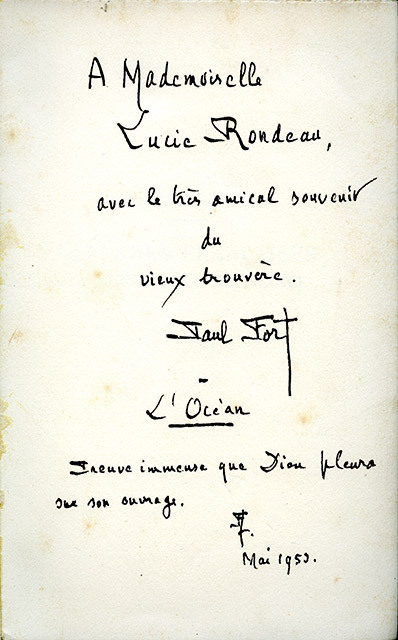 A Mademoiselle
Lucie Rondeau,
avec le très amical souvenir
du
vieux trouvère.
Paul Fort
L'Océan
Preuve immense que Dieu pleura
sur son ouvrage.
PF.
Mai 1953.